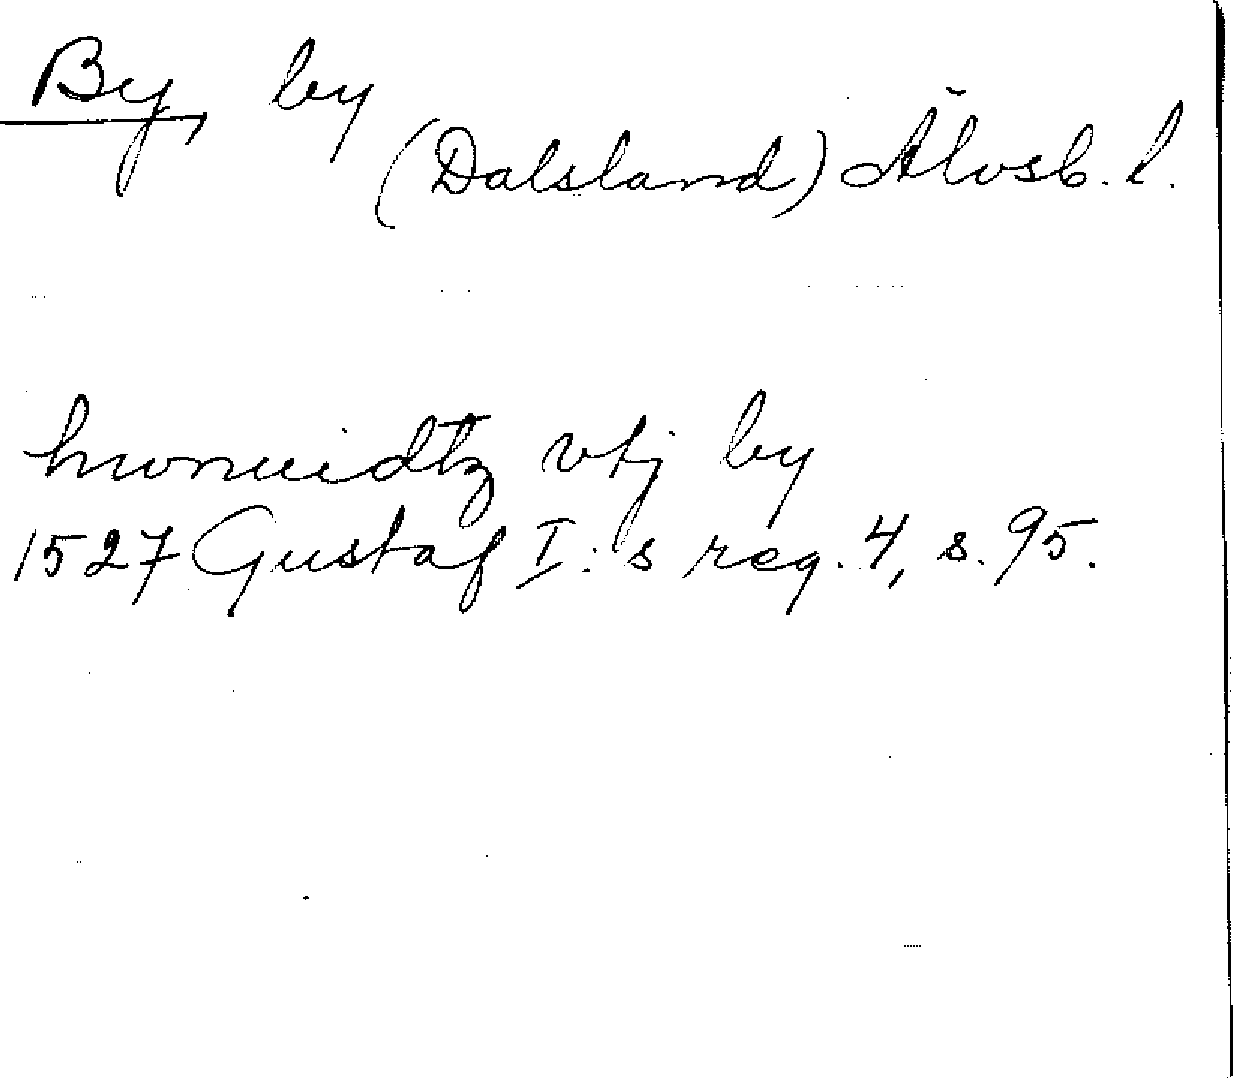 By, by
(Dalsland) Älvsb. l.
hwruidtz vtj by
1527 Gustaf I:s reg. 4, s. 95.